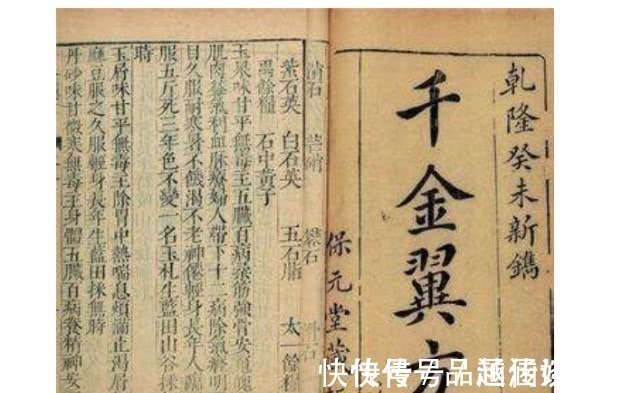 乾隆癸未新鐫
千金翼方
保元堂
消石 芒硝 礬石 滑石
紫石英 白石英 五石脂 太一餘糧
禹餘糧 石中黃子
玉泉味甘平無毒主五臟百病柔筋強骨安魂
肌肉益氣利血脉療婦人帶下十二病除氣癃明
目久服耐寒暑不餓渴不老神僊輕身長年人臨
服五斤死三年色不變一名玉札生藍田山谷採
時
玉屑味甘平無毒主除胃中熱喘息煩滿止渴屑
麻豆服之久服輕身長年生藍田採無時
丹砂味甘微寒無毒主身體五臟百病養精神安